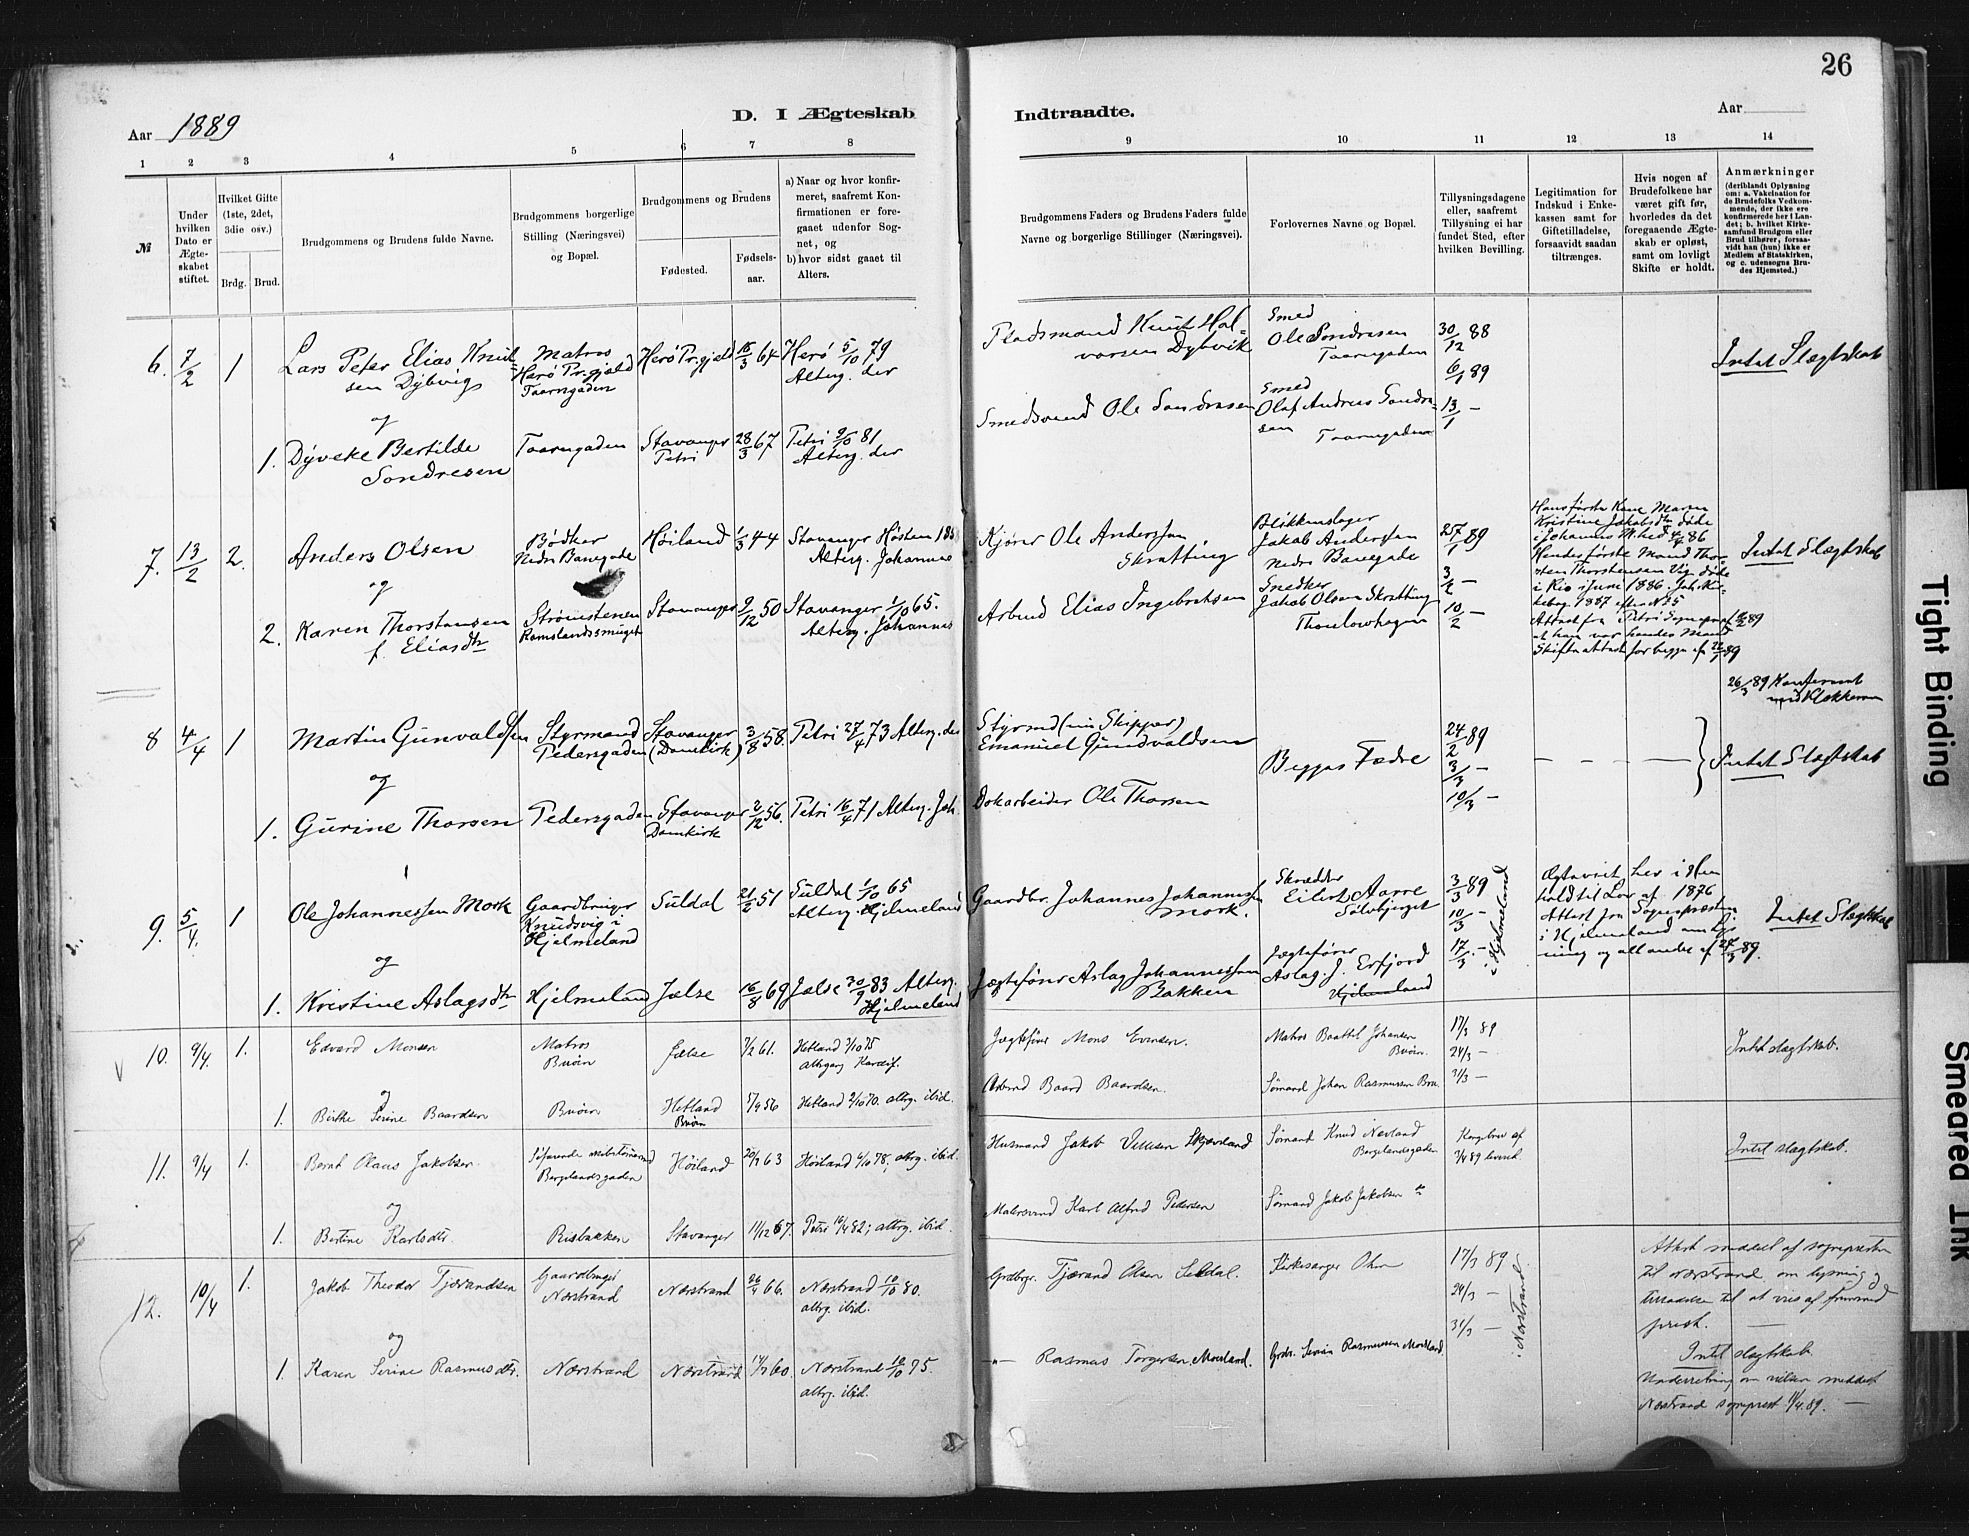 26
Aar 1889
D. I Ægteskab
Indtraadte.
Aar
1 2 3 4 5 6 7 8
9 10 11 12 13 14
№
Under hvilken Dato er Ægteskabet stiftet.
Hvilket Gifte (1ste, 2det, 3die osv.)
Brdg. Brud.
Brudgommens og Brudens fulde Navne.
Brudgommens borgerlige Stilling (Næringsvei) og Bopæl.
Brudgommens og Brudens
Fødested.
Fødselsaar.
a) Naar og hvor konfirmeret, saafremt Konfirmationen er foregaaet udenfor Sognet, og
b) hvor sidst gaaet til Alters.
Brudgommens Faders og Brudens Faders fulde Navne og borgerlige Stillinger (Næringsvei).
Forlovernes Navne og Bopæl.
Tillysningsdagene eller, saafremt Tillysning ei har fundet Sted, efter hvilken Bevilling.
Legitimation for Indskud i Enkekassen samt for Giftetilladelse, forsaavidt saadan tiltrænges.
Hvis nogen af Brudefolkene har været gift før, hvorledes da det foregaaende Ægteskab er opløst, samt om lovligt Skifte er holdt.
Anmærkninger
(deriblandt Oplysning om: a. Vakcination for de Brudefolks Vedkommende, der ikke ere konfirmerede her i Landet; b. hvilket Kirkesamfund Brudgom eller Brud tilhører, forsaavidt han (hun) ikke er Medlem af Statskirken, og c. udensogns Brudes Hjemsted.)
6. 7/2 1 Lars Peter Elias Knutsen Dybvig
Matros Herø Pr.gjeld Taarngaden
Herø Pr.gjeld 15/3 64 Herø 5/10 79 Alterg. der
Pladsmand Knut Halvorsen Dybvik
Smed Ole Sondresen Taarngaden
30/12 88 6/1 89 13/1 —
Intet Slægtskab
og
1. Dyveke Bertilde Sondresen
Taarngaden Stavanger Petri 28/3 67 Petri 9/10 81 Alterg. der
Smedsvend Ole Sondresen
Smed Olaf Andreas Sondresen Taarngaden
7. 13/2 2. Anders Olsen
Bødker Nedre Banegade
Høiland 1/3 44 Stavanger Høsten Alterg. Johannes
Kjører Ole Anderssen Skratting
Blikkenslager Jakob Anderssen Nedre Banegade
25/1 89 3/2 — 10/2 —
Hans første Kone Maren Kristine Jakobsdtr døde i Johannes
Hendes første Mand Thorsten Thorstensen Vig døde i Rio i Juni 1886.
Intet Slægtskab
og
2. Karen Thorstensen f. Eliasdtr
Strømstenen Ramslandssmuget
Stavanger 9/12 50 Stavanger 1/10 65. Alterg. Johannes
Arbmd Elias Ingebretsen
Snedker Jakob Olsen Skratting Thoulowhagen
Attest fra Petri Sognepræst
8 4/4 1 Martin Gunvaldsen
Styrmand Pedersgaden
Stavanger (Domkirk) 3/8 58. Petri 27/4 73 Alterg. der
Styrmd (nu Skipper) Emanuel Gundvaldsen
Begges Fædre
24/2 89 3/3 — 10/3 —
26/3 89 Konfereret med Klokkeren
Intet Slægtskab
og
1. Gurine Thorsen
Pedersgaden Stavanger Domkirk 2/12 56. Petri 16/4 71 Alterg. Joh.
Dokarbeider Ole Thorsen
9. 5/4. 1 Ole Johannessen Mork
Gaardbruger Knudsvig i Hjelmeland
Suldal 21/2 51 Suldal 1/10 65 Alterg. Hjelmeland
Gaardbr. Johannes Johannessen Mork.
Skrædder Eilert Aarre Sølvbjerget
3/3 89 10/3 — 17/3 — i Hjelmeland
Attest fra Sognepræsten i Hjelmeland
Intet Slægtskab
og
1. Kristine Aslagsdtr
Hjelmeland Jelse 16/8 69 Jelse 30/9 83 Alterg. Hjelmeland
Jægtefører Aslag Johannessen Bakken
Jægtefører Aslag J. Erfjord Hjelmeland
10. 9/4. 1. Edvard Monsen
Matros Buøen
Jælse 7/2 61. Hetland 3/10 75
Jægtefører Mons Evensen.
Matros Baattel Johansen Buøen.
17/3 89 24/3 — 31/3 —
Intet slægtskab.
og
1. Birthe Serine Baardsen
Buøen Hetland Buøen 5/9 56 Hetland 2/10 70. altrg. ibid.
Arbmd Baard Baardsen.
Sømand Johan Rasmussen Bru.
11. 9/4 1. Bernt Olaus Jakobsen.
Bergelandsgaden
Høiland 20/7 63 Høiland 6/10 78; altrg. ibid.
Husmand Jakob Skjæveland
Sømand Knud Nævland Bergelandsgaden
Kongebrev af
Intet slægtskab.
og
1. Bertine Karlsdtr.
Risbakken Stavanger 11/12 67. Petri 16/4 82; altrg. ibid.
Malersvend Karl Alfred Pedersen
Sømand Jakob Jakobsen
12. 10/4 1. Jakob Theodor Tjærandsen
Gaardbruger Nærstrand
Nærstrand 26/4 66. Nærstrand 10/10 80. altrg. ibid.
Grdbrgr. Tjærand Olsen Seldal.
Kirkesanger Olsen
17/3 89 24/3 — 31/3 — i Nærstrand
Attest meddelt af sognepræsten til Nærstrand om lysning og tilladelse til at vies af fremmed prest. —
og
1. Karen Serine Rasmusdtr.
Nærstrand Nærstrand 14/7 60. Nærstrand 10/10 75. altrg. ibid.
—"— Rasmus Torgersen Moesland.
Grdr. Sevrin Rasmussen Moesland
Intet slægtskab.
Underretning om vielsen meddelt Nærstrand sogneprest 11/4 89. —
Tight Binding
Smeared Ink